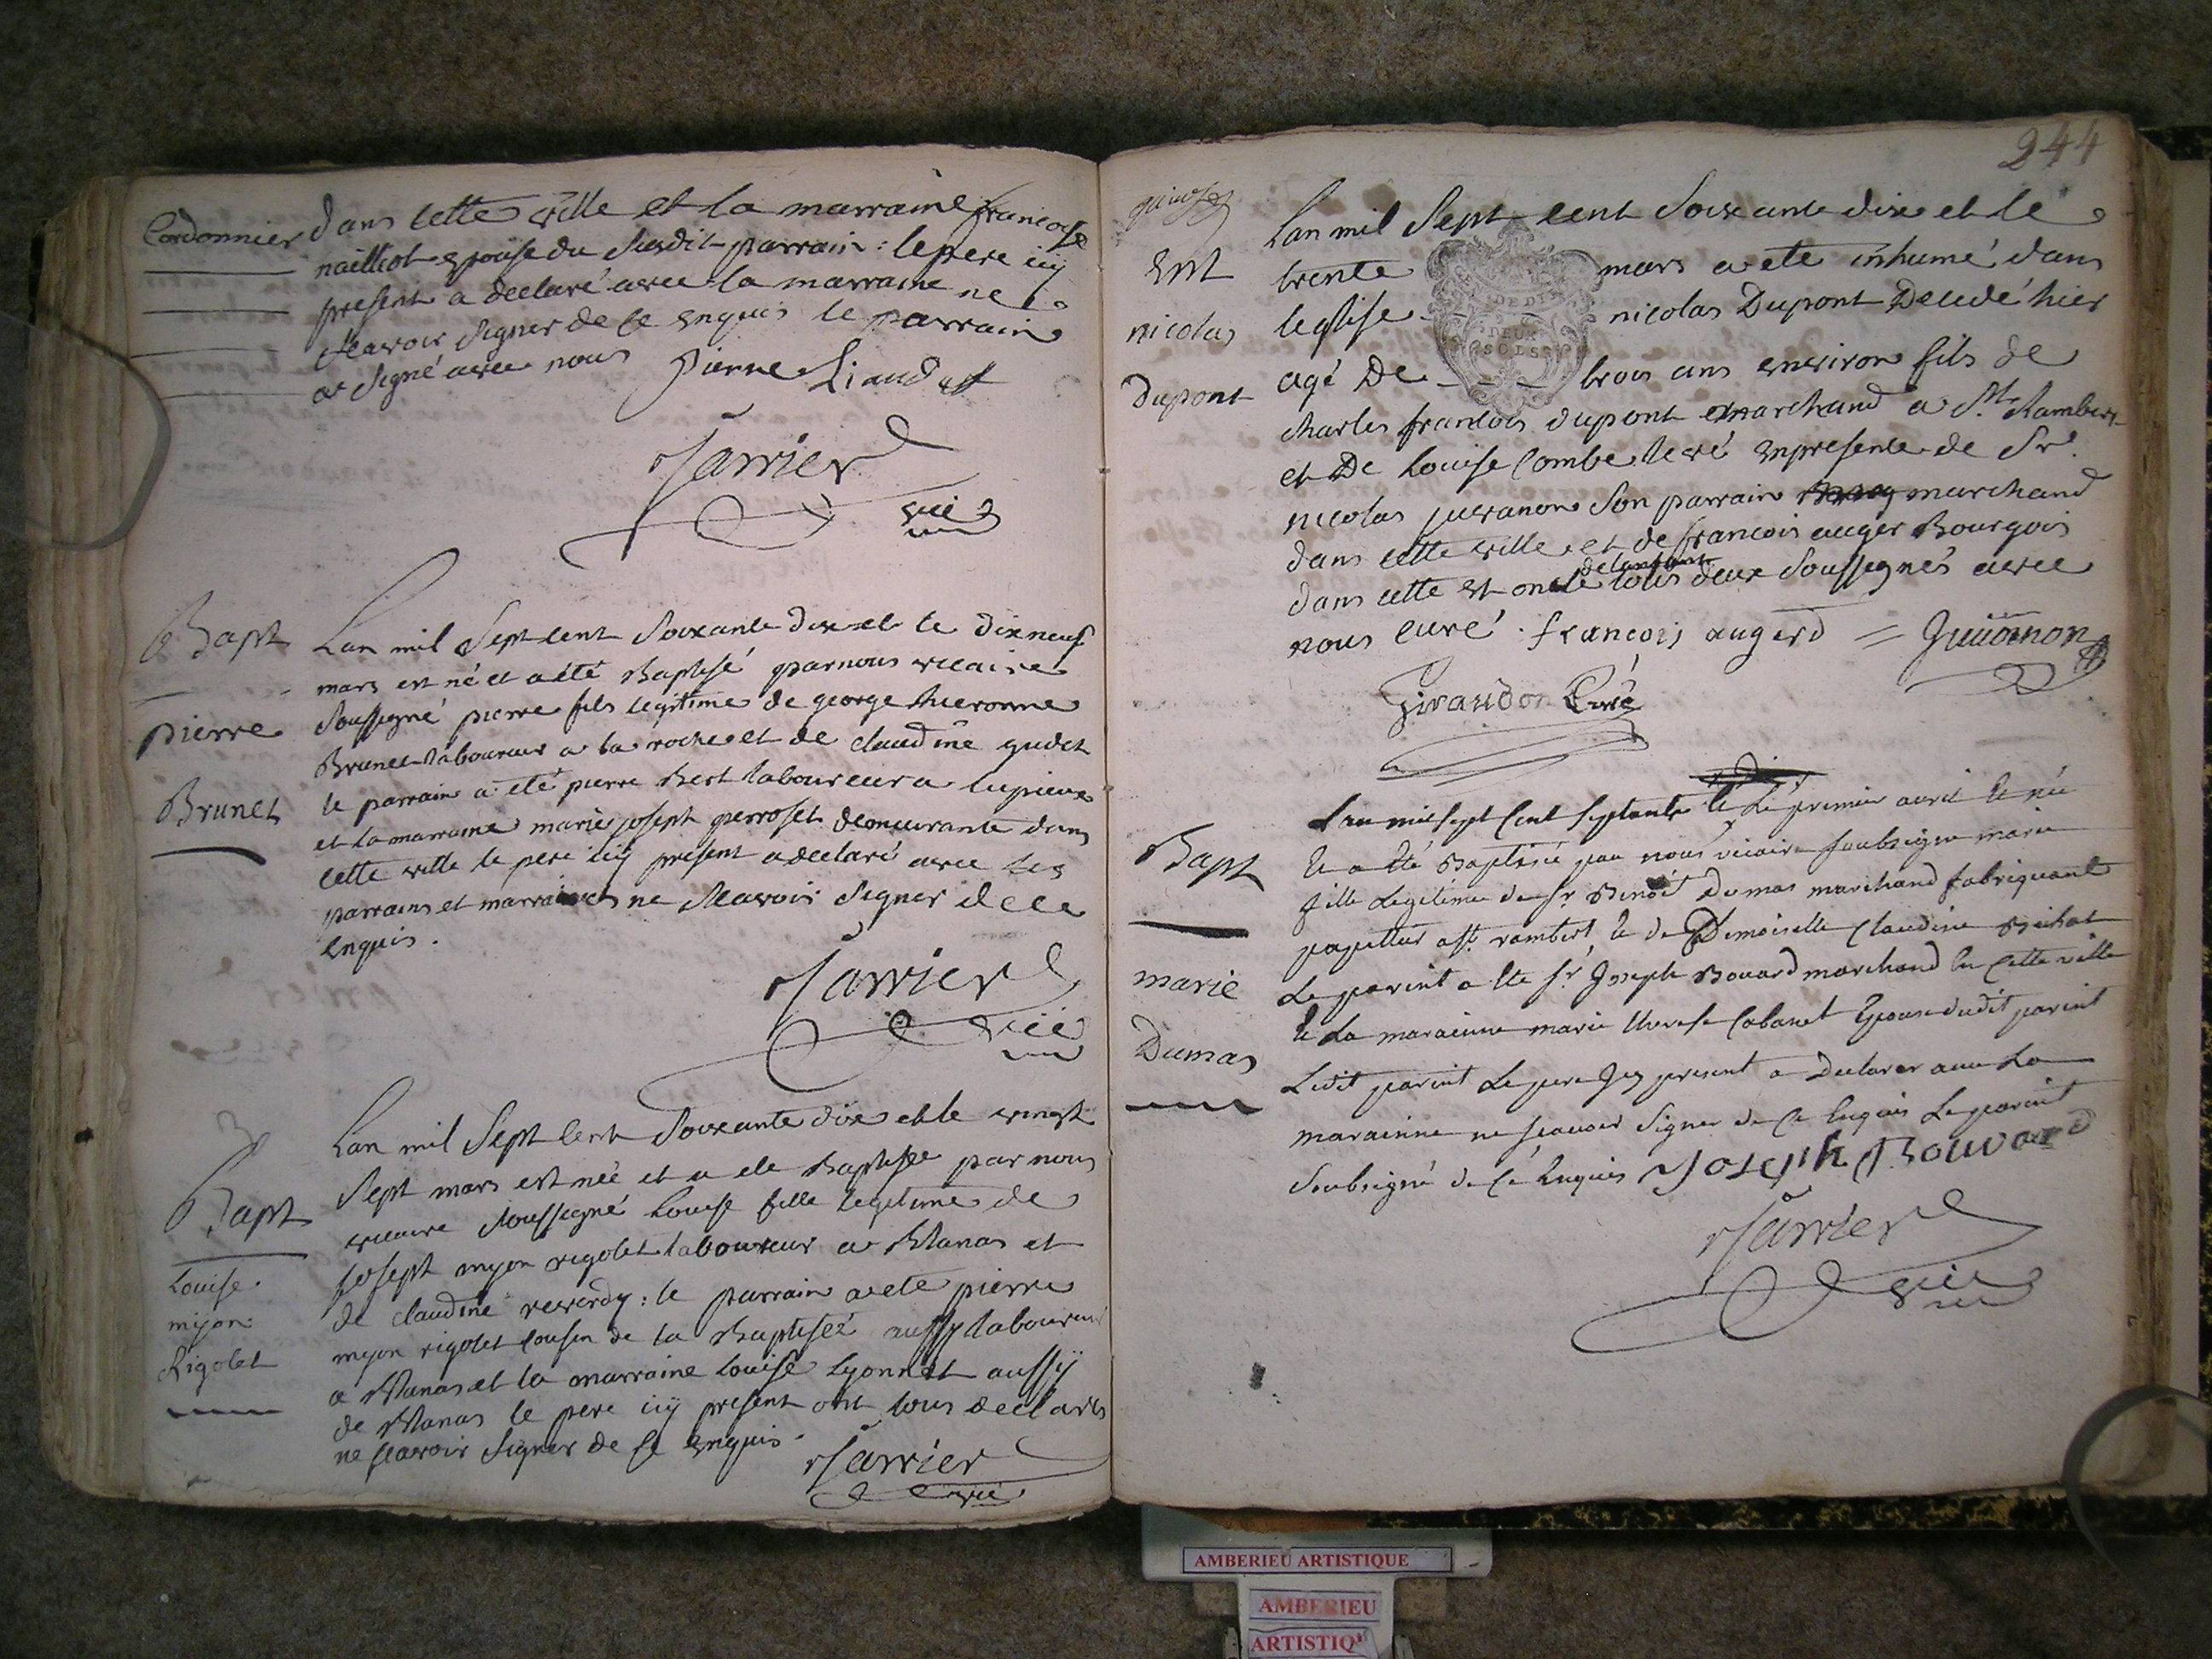 Cordonnier
dans cette ville et la marraine francoise
naillot epouse du susdit parrain : le pere icy
present a declaré avec la marraine ne
scavoir signer de ce enquis le parrain
a signé avec nous Pierre Liaudet
Jarrier
vic
Bapt
Pierre
Brunet
Lan mil Sept cent Soixante dix et le dixneuf
mars est né et a été Baptisé par nous vicaire
soussigné pierre fils legitime de george hieronme
Brunet laboureur a la roche et de claudine gudet
le parrain a été pierre Best laboureur a lupieux
et la marraine marie joseph perroset demeurante dans
cette ville le pere icy present a declaré avec les
parrains et marraines ne scavoir signer de ce
enquis .
Jarrier
vic
Bapt
Louise
mijon
Rigolet
Lan mil Sept cent Soixante dix et le vingt
Sept mars est née et a ete Baptisée par nous
vicaire soussigné Louise fille legitime de
joseph myon rigolet laboureur a Blanas et
de claudine reverdy : le parrain a ete pierre
myon rigolet cousin de la Baptiseé aussy laboureur
a Blanas et la marraine Louise Lyonnet aussy
de Blanas le pere icy present ont tous declarés
ne scavoir signer de ce enquis .
Jarrier
vic
244
Ent
nicolas
dupont
Lan mil Sept cent Soixante dix et le
trente mars a ete inhumé dans
leglise nicolas Dupont Decedé hier
agé De trois ans environ fils de
charles francois dupont marchand a St. Rambert
et De Louise Combe levé en presence de Sr.
nicolas juvanon son parrain marchand
dans cette ville et de francois auger Bourgois
de lenfant
dans cette et oncle tous deux soussignés avec
nous curé . francois augerd = Juvanon
Giraudon Curé
DEUX
SOLS
Bapt
marie
Dumas
Lan mil sept Cent septante le premier avril Et née
Et a Eté Baptisée par nous vicaire soubsigne marie
fille Legitime de sr Benoit Dumas marchand fabriquant
a st rambert Et de Demoiselle Claudine Bichat
Le parint a Ete sr Joseph Bouard marchand En cette ville
Et La marainne marie therese Cabanet Epouse dudit parint
Ledit parint Le pere Icy present a Declarer avec La
marainne ne scavoir signer de ce Enquis Le parint
Soubsigné de Ce Enquis Joseph Bouvard
Jarrier
vic
AMBERIEU ARTISTIQUE
AMBERIEU
ARTISTIQ